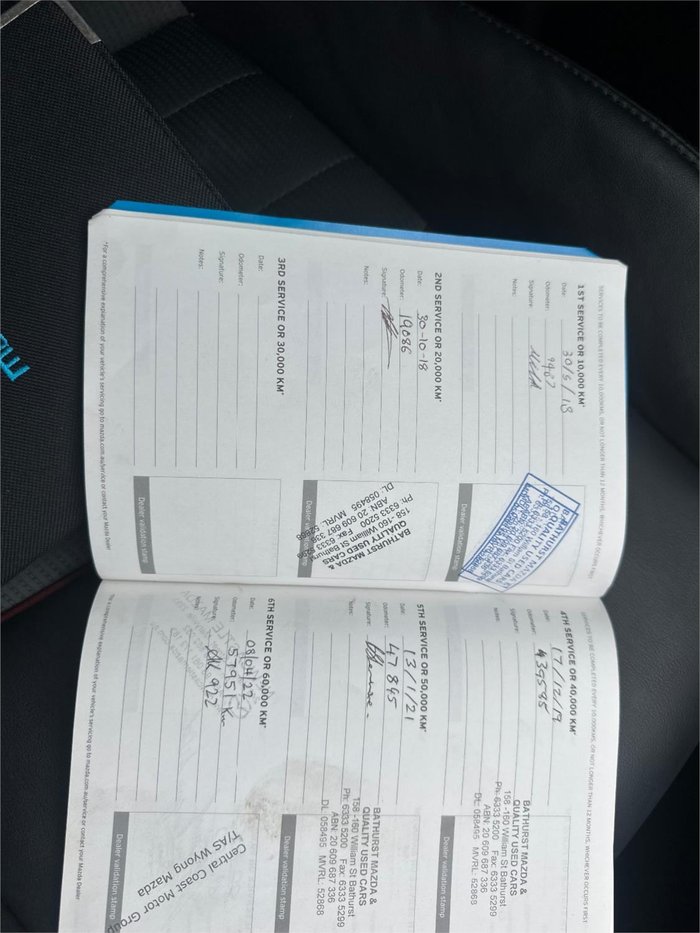 SERVICES TO BE COMPLETED EVERY 10,000KMS, OR NOT LONGER THAN 12 MONTHS, WHICHEVER OCCURS FIRST
1ST SERVICE OR 10,000 KM*
Date: 30/5/18
Odometer: 9487
Signature:
Notes:
Dealer validation stamp
2ND SERVICE OR 20,000 KM*
Date: 30-10-18
Odometer: 19086
Signature:
Notes:
BATHURST MAZDA &
QUALITY USED CARS
158 -160 William St Bathurst
Ph: 6333 5200 Fax: 6333 5299
ABN: 20 609 687 336
DL: 058495 MVRL: 52868
Dealer validation stamp
3RD SERVICE OR 30,000 KM*
Date:
Odometer:
Signature:
Notes:
Dealer validation stamp
*For a comprehensive explanation of your vehicle's servicing go to mazda.com.au/service or contact your Mazda Dealer
SERVICES TO BE COMPLETED EVERY 10,000KMS, OR NOT LONGER THAN 12 MONTHS, WHICHEVER OCCURS FIRST
4TH SERVICE OR 40,000 KM*
Date: 17/12/19
Odometer: 39595
Notes:
BATHURST MAZDA &
QUALITY USED CARS
158 -160 William St Bathurst
Ph: 6333 5200 Fax: 6333 5299
ABN: 20 609 687 336
DL: 058495 MVRL: 52868
Dealer validation stamp
5TH SERVICE OR 50,000 KM*
Date: 13/1/21
Odometer: 47895
Signature:
Notes:
BATHURST MAZDA &
QUALITY USED CARS
158 -160 William St Bathurst
Ph: 6333 5200 Fax: 6333 5299
ABN: 20 609 687 336
DL: 058495 MVRL: 52868
Dealer validation stamp
6TH SERVICE OR 60,000 KM*
Date: 08/04/22
Odometer: 57951 Km
Signature: 922
Notes:
Central Coast Motor Group
T/AS Wyong Mazda
Dealer validation stamp
comprehensive explanation of your vehicle's servicing go to mazda.com.au/service or contact your Mazda Dealer